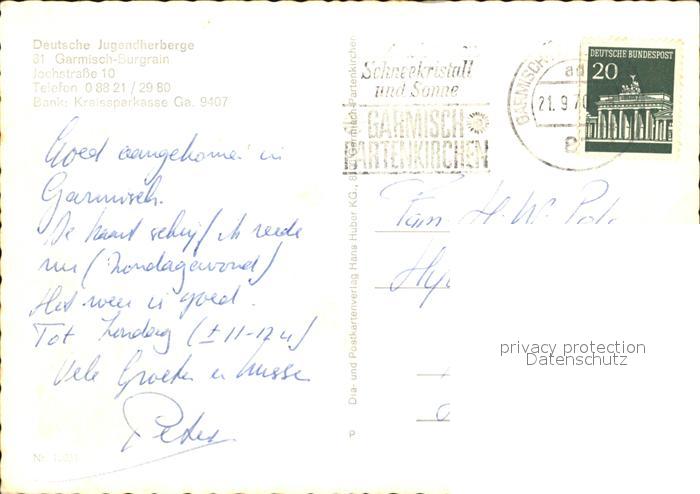 Deutsche Jugendherberge
81 Garmisch-Burgrain
Jochstraße 10
Telefon 0 88 21 / 29 80
Bank: Kreissparkasse Ga. 9407
Goed aangekomen in
Garmisch.
De kaart schrijf ik reeds
nu (Zondagavond)
Het weer is goed.
Tot Zondag (± 11-12 u)
Vele Groeten en kussen
Peter
P
Dia- und Postkartenverlag Hans Huber KG., Garmisch-Partenkirchen
Schneekristall
und Sonne
GARMISCH
PARTENKIRCHEN
GARMISCH
21. 9. 70
DEUTSCHE BUNDESPOST
20
Fam. H. W.
privacy protection
Datenschutz